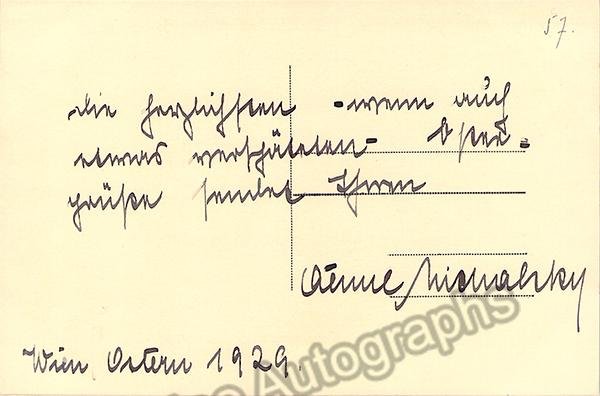 57.
die herzlichsten - wenn auch
etwas verspäteten - Oster-
grüße sendet Ihnen
Aenne Michalsky
Wien Ostern 1929.
Autographs